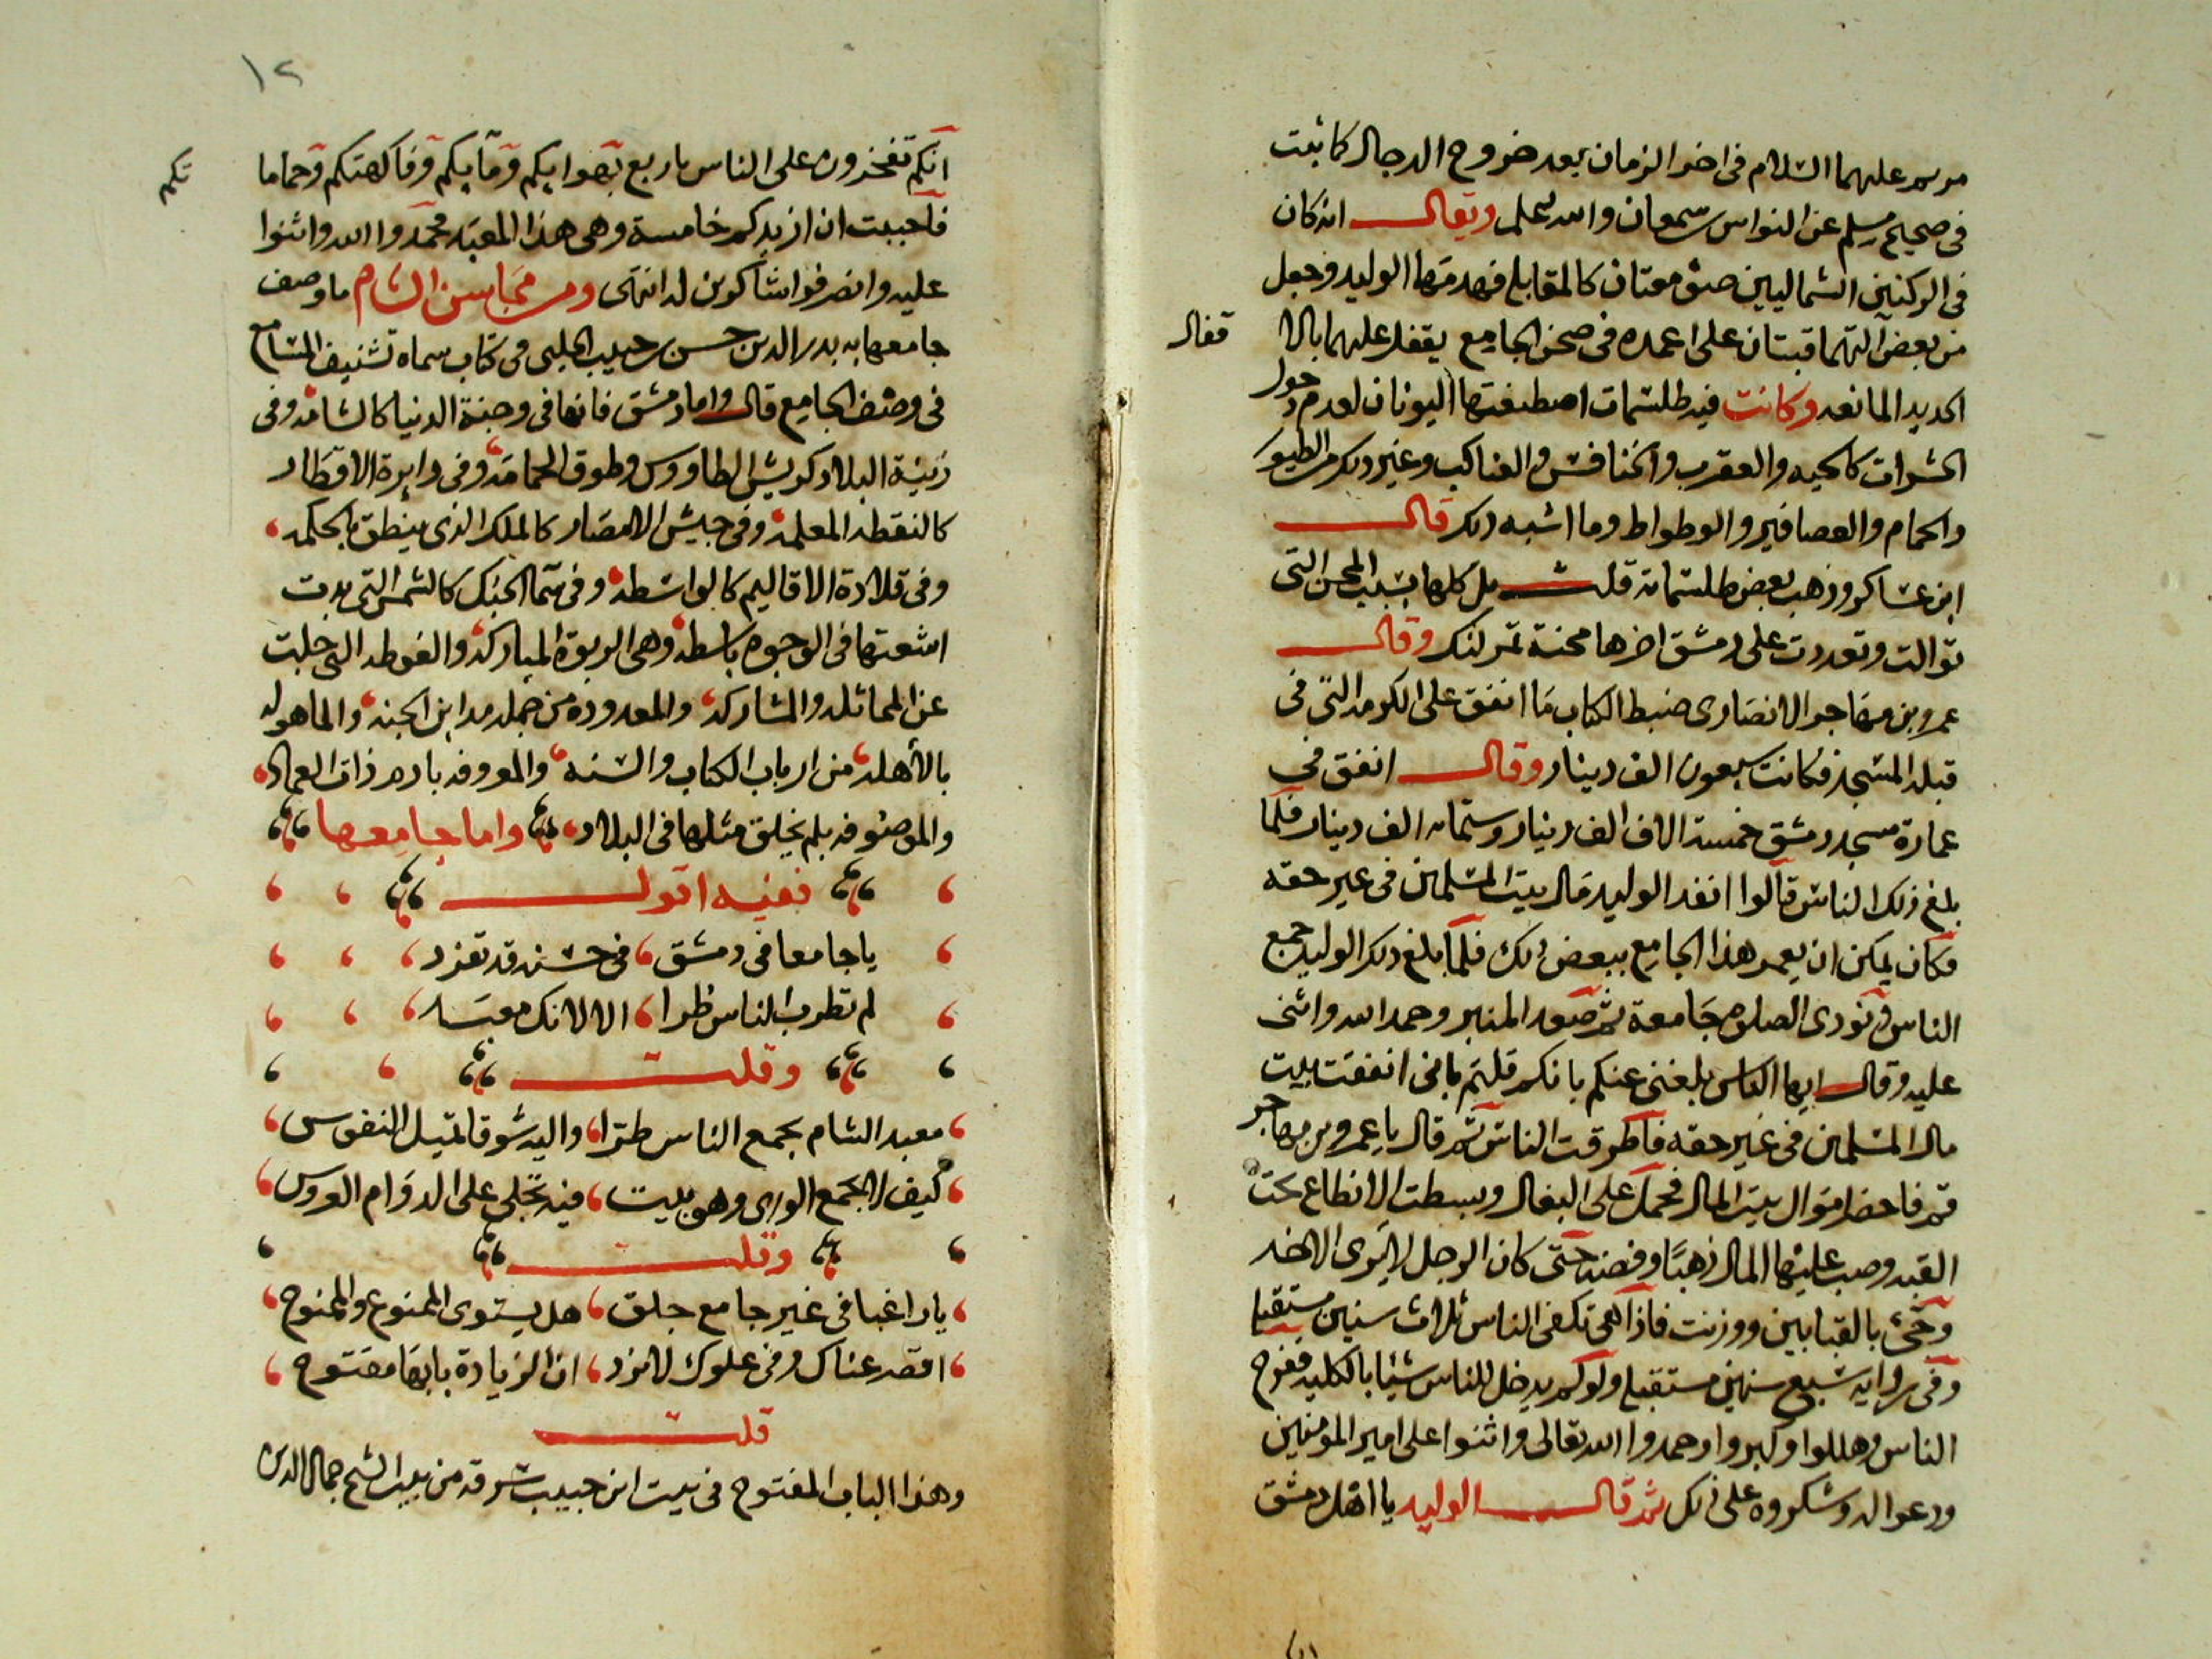 مريم عليهما السلام في اخر الزمان بعد خروج الدجال كما ثبت
في صحيح مسلم عن النواس بن سمعان والله يعلم ويقال انه كان
في الركنين الشماليين صومعتان كالمقابله فهدمها الوليد وجعل
من بعض التهما قبتان على اعمده في صحن الجامع يقفل عليهما بالا
قفال
الحديد المانعه وكانت فيه طلسمات اصطنعتها اليونان لعدم دخول
الحشرات كالحيه والعقرب والخنافس والعناكب وغير ذلك من الطيور
والحمام والعصافير والوطواط وما اشبه ذلك قال
ابن عساكر وذهب بعض طلسماته قلت بل كلها بسبب المحن التي
توالت وتعددت على دمشق اخرها محنة تمرلنك وقال
عمرو بن مهاجر الانصاري ضبط الكتاب ما انفق على الكرمه التي في
قبله المسجد فكانت سبعون الف دينار وقال انفق في
عمارة مسجد دمشق خمسة الاف الف دينار وستمايه الف دينار فلما
بلغ ذلك الناس قالوا انفد الوليد مال بيت المسلمين في غير حقه
فكان يمكن ان يعمر هذا الجامع ببعض ذلك فلما بلغ ذلك الوليد جمع
الناس ونودي الصلوه جامعة ثم صعد المنبر وحمد الله واثنى
عليه وقال ايها الناس بلغني عنكم بانكم قلتم باني انفقت بيت
مال المسلمين في غير حقه فاطرقت الناس ثم قال يا عمرو بن مهاجر
قم فاحضر اموال بيت المال فحمل على البغال وبسطت الانطاع تحت
القبه وصب عليها المال ذهبًا وفضه حتى كان الرجل لا يرى الاخر
وجيئ بالقبابين ووزنت فاذا هي تكفي الناس ثلاث سنين مستقبله
وفي روايه سبع سنين مستقبله ولو لم يدخل للناس شيئا بالكليه ففرح
الناس وهللوا وكبروا وحمدوا الله تعالى واثنوا على امير المومنين
ودعوا له وشكروه على ذلك ثم قال الوليد يا اهل دمشق
١٢
انكم تفخرون على الناس باربع بهوايكم ومايكم وفاكهتكم وحماما
تكم
فاحببت ان ازيدكم خامسة وهي هذا المعبد فحمدوا الله واثنوا
عليه وانصرفوا شاكرين له انتهى ومن محاسن الشام ما وصف
جامعها به بدر الدين حسن بن حبيب الحلبي في كتاب سماه تشنيف المسامع
في وصف الجامع قال واما دمشق فانها في وجنة الدنيا كالشامه وفي
زينة البلاد كريش الطاووس وطوق الحمامه وفي دايرة الاقطار
كالنقطه المعلمه وفي جيش الامصار كالملك الذي ينطق بالحكمه
وفي قلادة الاقاليم كالواسطه وفي سما الحبك كالشمس التي بدت
اشعتها في الوجوه باسطه وهي الربوة المباركه والغوطه التي جلت
عن المماثله والمشاركه والمعدوده من جمله مداين الجنه والماهوله
بالأهله من ارباب الكتاب والسنه والمعروفه بارم ذات العماد
والموصوفه بلم يخلق مثلها في البلاد واما جامعها
ففيه اقول
يا جامعا في دمشق في حسنه قد تفرد
لم تطرب الناس طرا الا لانك معبد
وقلت
معبد الشام يجمع الناس طرا واليه شوقا تميل النفوس
كيف لا يجمع الورى وهو بيت فيه تجلى على الدوام العروس
وقلت
يا راغبا في غير جامع جلق هل يستوي الممنوع والممنوح
اقصر عناك وفي علوك لا تزد ان الزيادة بابها مفتوح
قلت
وهذا الباب المفتوح في بيت ابن حبيب سرقه من بيت الشيخ جمال الدين